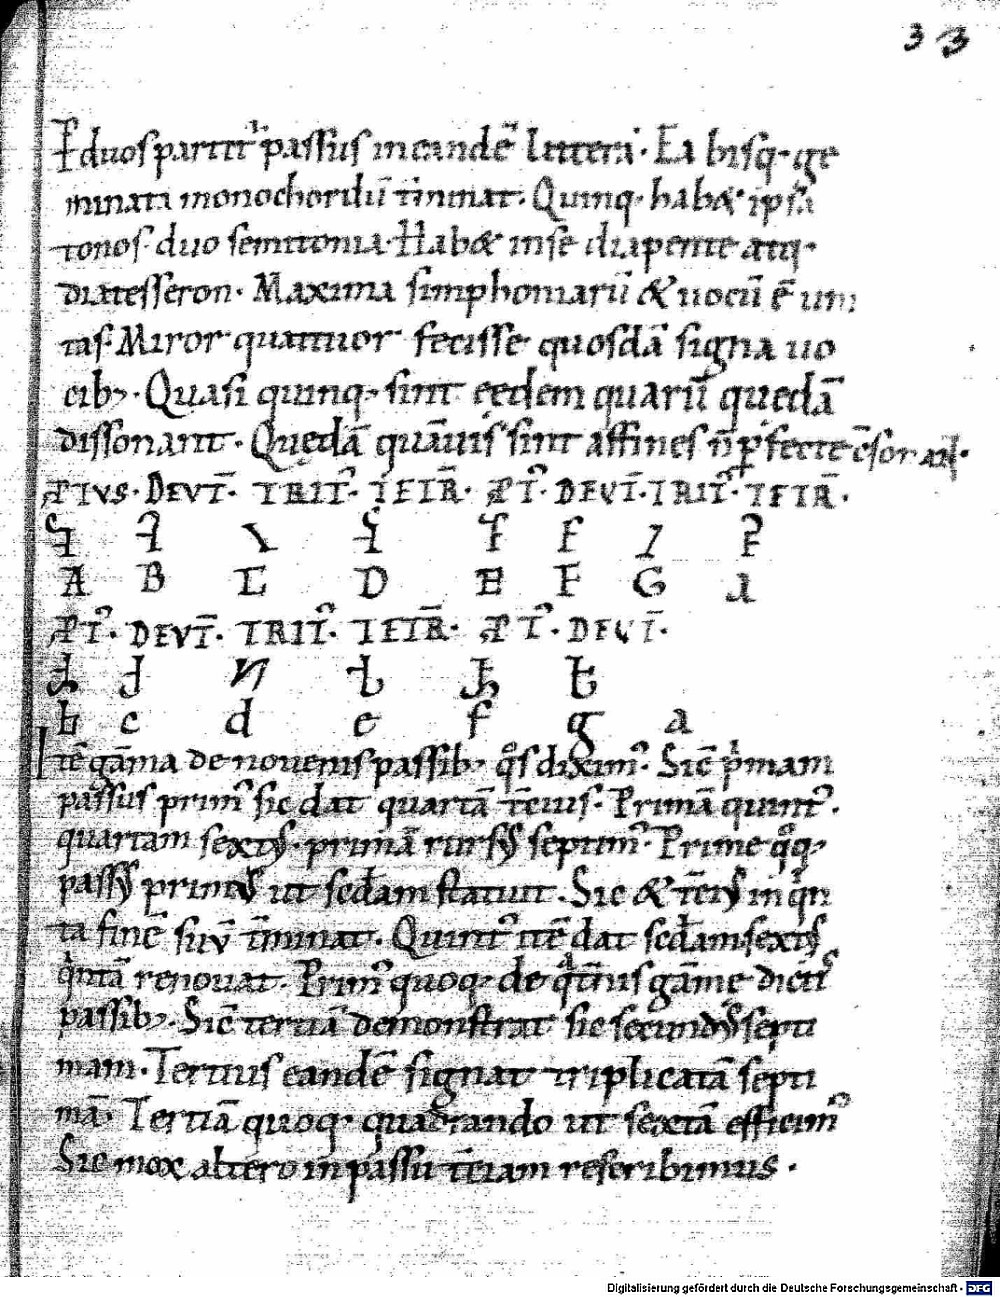 33
duos partit᷒ passus in eandē littera. Ea bisq; ge
minata monochordū t̄minat. Quinq; habet ipsa
tonos duo semitonia. Habet in se diapente atq;
diatesseron. Maxima simphoniarū & uocū ē uni
tas. Miror quattuor fecisse quosdā signa uo
cib;. Quasi quinq; sint eedem quarū quedā
dissonant. Quedā quāuis sint affines n̄ ꝑfecte
DEVT̄. TRIT᷒. TETR̄. PT᷒. DEVT̄. TRIT᷒. TETR̄.
A B C D E F G a
PT᷒. DEVT̄. TRIT᷒. TETR̄. PT᷒. DEVT̄.
b c d e f g a
Itē gāma de nouenis passib; qͦs diximꝰ. Sic pͥmam
passus primꝰ sic dat quartā t̄cius. Primā quintꝰ.
quartam sextꝰ. primā rursꝰ septimꝰ. Prime qͦq;
passꝰ primꝰ ut scdam statuit. Sic & t̄ciꝰ in qͥn
ta finē suū t̄minat. Quintꝰ itē dat scdam sextꝰ
qͥntā renouat. Primꝰ quoq; de qͣt̄nis gāme dictis
passib;. Sic tertiā demonstrat sic secundꝰ septi
mam. Tertius eandē signat triplicatā septi
mā. Tertiā quoq; quadrando ut sextā efficimꝰ
Sic mox altero in passu t̄ciam referibimus.
Digitalisierung gefördert durch die Deutsche Forschungsgemeinschaft - DFG